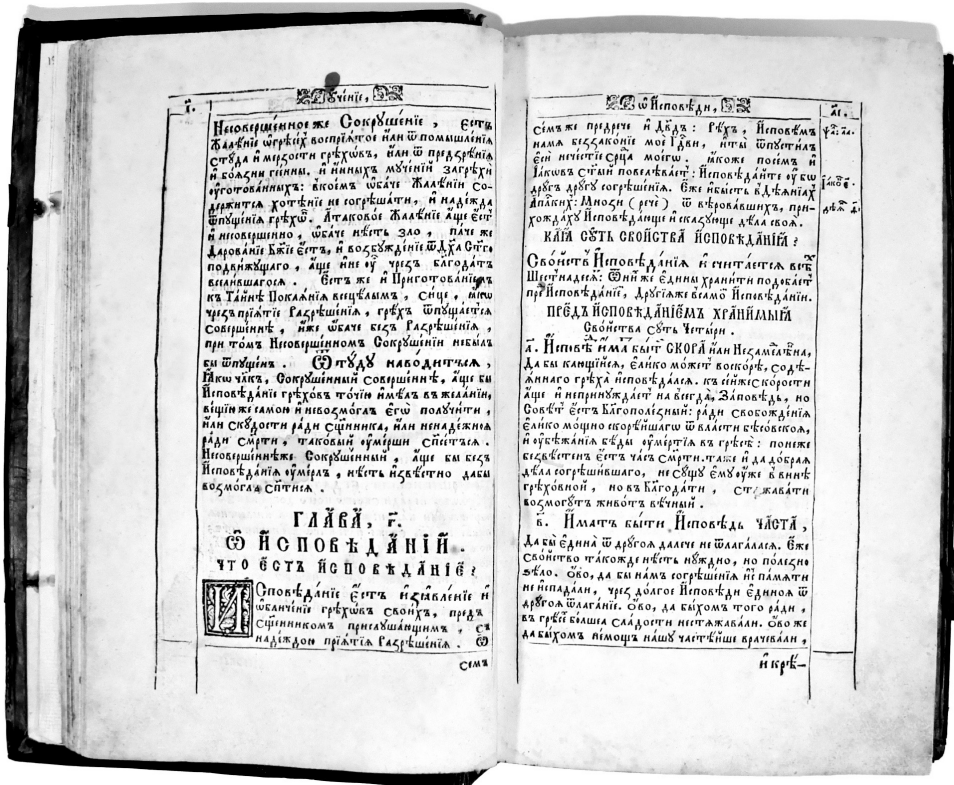 І҃.
Ѹче́нїе,
Несоверше́нное же Сокрꙋше́нїе , є҆́сть
Жалѣ́нїе ѡ҆ грѣсѣ́хъ воспрїѧ́тое и҆лѝ ѿ помышле́нїѧ
стꙋда̀ и҆ ме́рзости грѣхѡ́въ, и҆лѝ ѿ предзрѣ́нїѧ
и҆ боѧ́зни гее́нны. и҆ и҆ны́хъ мꙋче́нїй за грѣхѝ
ᲂу҆гото́ванныхъ: в ко́емъ ѻ҆ба́че Жалѣ́нїи со-
держи́тсѧ хотѣ́нїе не согрѣша́ти, и҆ наде́жда
ѿпꙋще́нїѧ грѣхѡ́. А таково́е Жалѣ́нїе а҆́ще є҆́ст
и҆ несоверше́нно, ѻ҆ба́че нѣ́сть ѕло , па́че же
Дарова́нїе Бж҃їе є҆́сть, и҆ возбꙋжде́нїе ѿ Дх҃а ст҃го
подви́жꙋщаго , а҆́ще и҆ не ᲂу҆̀ чрез̾ бл҃года́ть
всели́вшагосѧ . є҆́сть же и҆ Приготова́нїемъ
къ Та́йнѣ Покаѧ́нїѧ всецѣ́лымъ , си́це , ꙗ҆́кѡ
чрез̾ прїѧ́тїе Разрѣше́нїѧ , грѣ́хъ ѿпꙋща́етсѧ
соверше́ннѣ , и҆́же ѻ҆ба́че без̾ Разрѣше́нїѧ ,
при то́мъ Несоверше́нномъ Сокрꙋше́нїи не бы́лъ
бы ѿпꙋще́н . Ѿтꙋ́дꙋ наво́дитсѧ ,
ꙗ҆́кѡ чл҃къ, Сокрꙋше́нный соверше́ннѣ, а҆́ще бы
И҆сповѣ́данїе грѣхѡ́въ то́чїю и҆мѣ́лъ въ жела́нїи,
вѣщїю же само́ю и҆ не возмо́глъ є҆гѡ̀ полꙋчи́ти ,
и҆лѝ скꙋ́дости ра́ди сщ҃е́нника, и҆лѝ нена́дежноѧ
ра́ди сме́рти , таковы́й ᲂу҆ме́рши сп҃се́тсѧ .
Несоверше́ннѣ же Сокрꙋше́нный , а҆́ще бы без̾
И҆сповѣ́данїѧ ᲂу҆ме́рлъ , нѣ́сть и҆звѣ́стно дабы̀
возмо́глъ сп҃ти́сѧ .
ГЛА́ВА̀, Г҃.
Ѡ҆ И҆СПОВѢ́ДАНІЙ .
ЧТО̀ Є҆́СТЬ И҆СПОВѢ́ДАНІЕ ?
И҆Сповѣ́данїе є҆́сть и҆з̾ѧвле́нїе и҆
ѡ҆бличе́нїе грѣхѡ́въ свои́хъ, пре́дъ
сщ҃е́нникомъ прислꙋша́ющимъ , съ
наде́ждою прїѧ́тїѧ Разрѣше́нїѧ . Ѡ҆
семъ
ѡ҆ И҆сповѣди,
а҃і.
се́мъ же предречѐ и҆ Дв҃дъ : Рѣ́хъ , И҆сповѣ́мъ
на мѧ̀ беззако́нїе моѐ Гд҃ви, и҆ ты̀ ѿпꙋсти́лъ
є҆сѝ нече́стїе ср҃ца моегѡ̀. ꙗ҆́коже посе́мъ и҆
І҆а́кѡвъ ст҃ы́й повелѣва́етъ : И҆сповѣ́дайте ᲂу҆̀бѡ
дрꙋ́гъ дрꙋ́гꙋ согрѣше́нїѧ. є҆́же и҆ бы́сть в̾ дѣѧ́нїѧхъ
А҆п҃лкихъ : Мно́зи ( речѐ ) ѿ вѣ́ровавшихъ, при-
хожда́хꙋ И҆сповѣ́дающе и҆ ска́зꙋюще дѣла̀ своѧ̀.
ѱа҃л: ла.
І҆а́кѡ: є҃.
дѣѧ҃:
КАѦ СꙊ́ТЬ СВО́ЙСТВА И҆СПОВѢ́ДАНІѦ ?
Сво́йствъ И҆сповѣ́данїѧ и҆ счита́етсѧ всѣ́хъ
Шестна́десѧ: Ѿ ни́х же є҆ди́ны храни́ти подоба́етъ
пре́дъ И҆сповѣ́данїемъ, Дрꙋгі́ѧ же в̾ само́мъ И҆сповѣ́данїи.
ПРЕ́ДЪ И҆СПОВѢ́ДАНІЕМЪ ХРАНИ́МЫѦ
Сво́йства сꙋ́ть Четы́ри .
а҃. И҆сповѣ́дь и҆́ма бы́ти СКОРА̀ и҆лѝ Незаме́дленна,
Да бы ка́ющїйсѧ, є҆ли́ко мо́жетъ воско́рѣ, содѣ́-
ѧннаго грѣха̀ и҆сповѣ́далсѧ. къ сі́й же ско́рости
а҆́ще и҆ не принꙋжда́етъ на всегда̀, За́повѣдь, но
Совѣ́т є҆́сть Благополе́зный: ра́ди свобожде́нїѧ
є҆ли́ко мо́щно скорѣ́йшагѡ ѿ вла́сти бѣсо́вскоѧ,
и҆ ᲂу҆бѣжа́нїѧ бѣды̀ ᲂу҆ме́ртїѧ въ грѣсѣ̀ : поне́же
безвѣ́стенъ є҆́сть ча́съ сме́рти. та́же и҆ да до́браѧ
дѣла̀ согрѣши́вшаго, не сꙋ́щꙋ є҆мꙋ̀ ᲂу҆жѐ в винѣ̀
грѣхо́вной , но въ Бл҃года́ти , стѧжава́ти
возмо́гꙋтъ живо́тъ вѣ́чный .
в҃. И҆́мать бы́ти И҆сповѣ́дь ЧА́СТА ,
Да бы̀ є҆ди́на ѿ дрꙋгі́ѧ дале́че не ѿлага́ласѧ. є҆́же
сво́йство та́кожде нѣ́сть нꙋ́ждно, но поле́зно
ѕѣлѡ̀. Ѻ҆́во, да бы на́мъ согрѣше́нїѧ и҆з̾ па́мѧти
не и҆спада́ли, чрез̾ до́лгое И҆сповѣ́ди є҆ди́ноѧ ѿ
дрꙋгі́ѧ ѿлага́нїе. Ѻ҆́во, да бы́хомъ того̀ ра́ди ,
въ грѣсѣ̀ бо́лшеѧ сла́дости не стѧжава́ли. Ѻ҆́во же
да бы́хомъ не́мощь на́шꙋ часте́йше врачева́ли ,
и҆ крѣ-